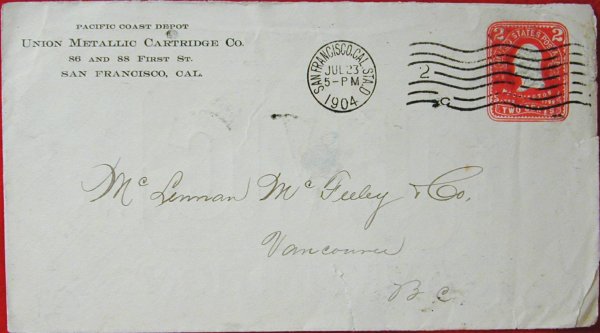 PACIFIC COAST DEPOT
UNION METALLIC CARTRIDGE CO.
86 AND 88 FIRST ST.
SAN FRANCISCO, CAL.
SAN FRANCISCO, CAL. STA. D
JUL 23
5-PM
1904
2
2 STATES POSTA 2
TWO
Mc Lennan Mc Feeley & Co.
Vancouver
B C